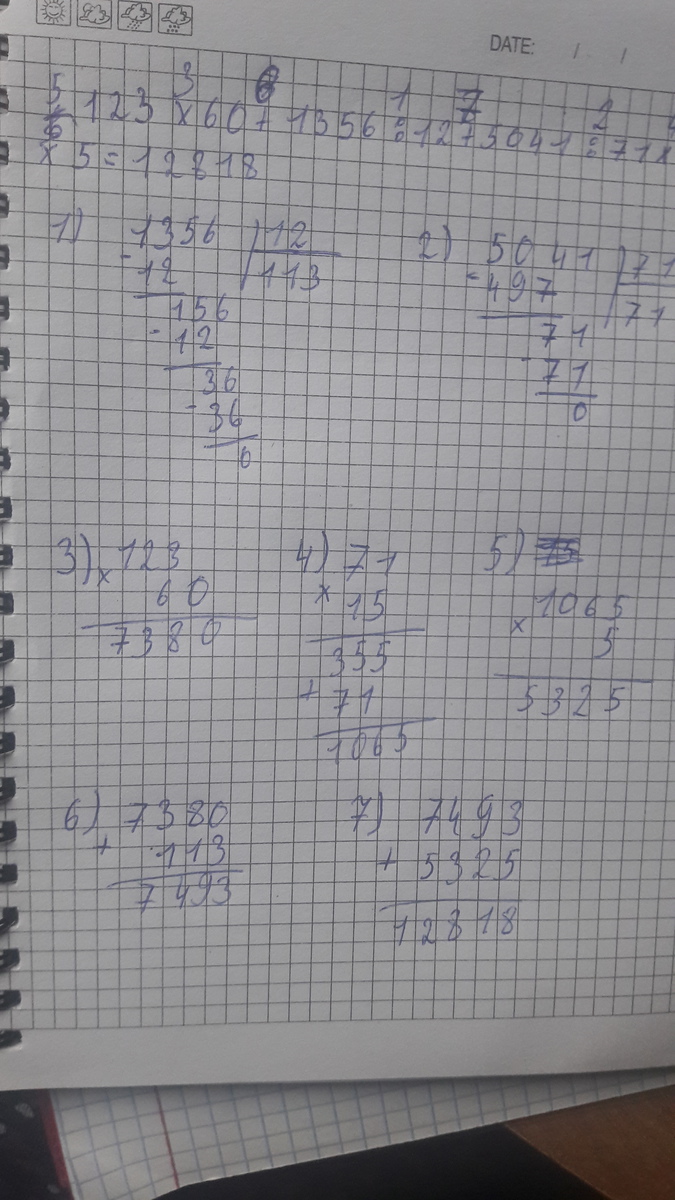 DATE: / /
5 3 6 1 7 2
123 × 60 + 1356 : 12 + 5041 : 71 ×
× 5 = 12818
1) 1356 12 2) 5041 71
- 12 113 - 497 71
156 71
- 12 - 71
36 0
- 36
0
3) 123 4) 71 5)
× 60 × 15 1065
7380 355 × 5
+ 71 5325
1065
6) 7380 7) 7493
+ 113 + 5325
7493 12818